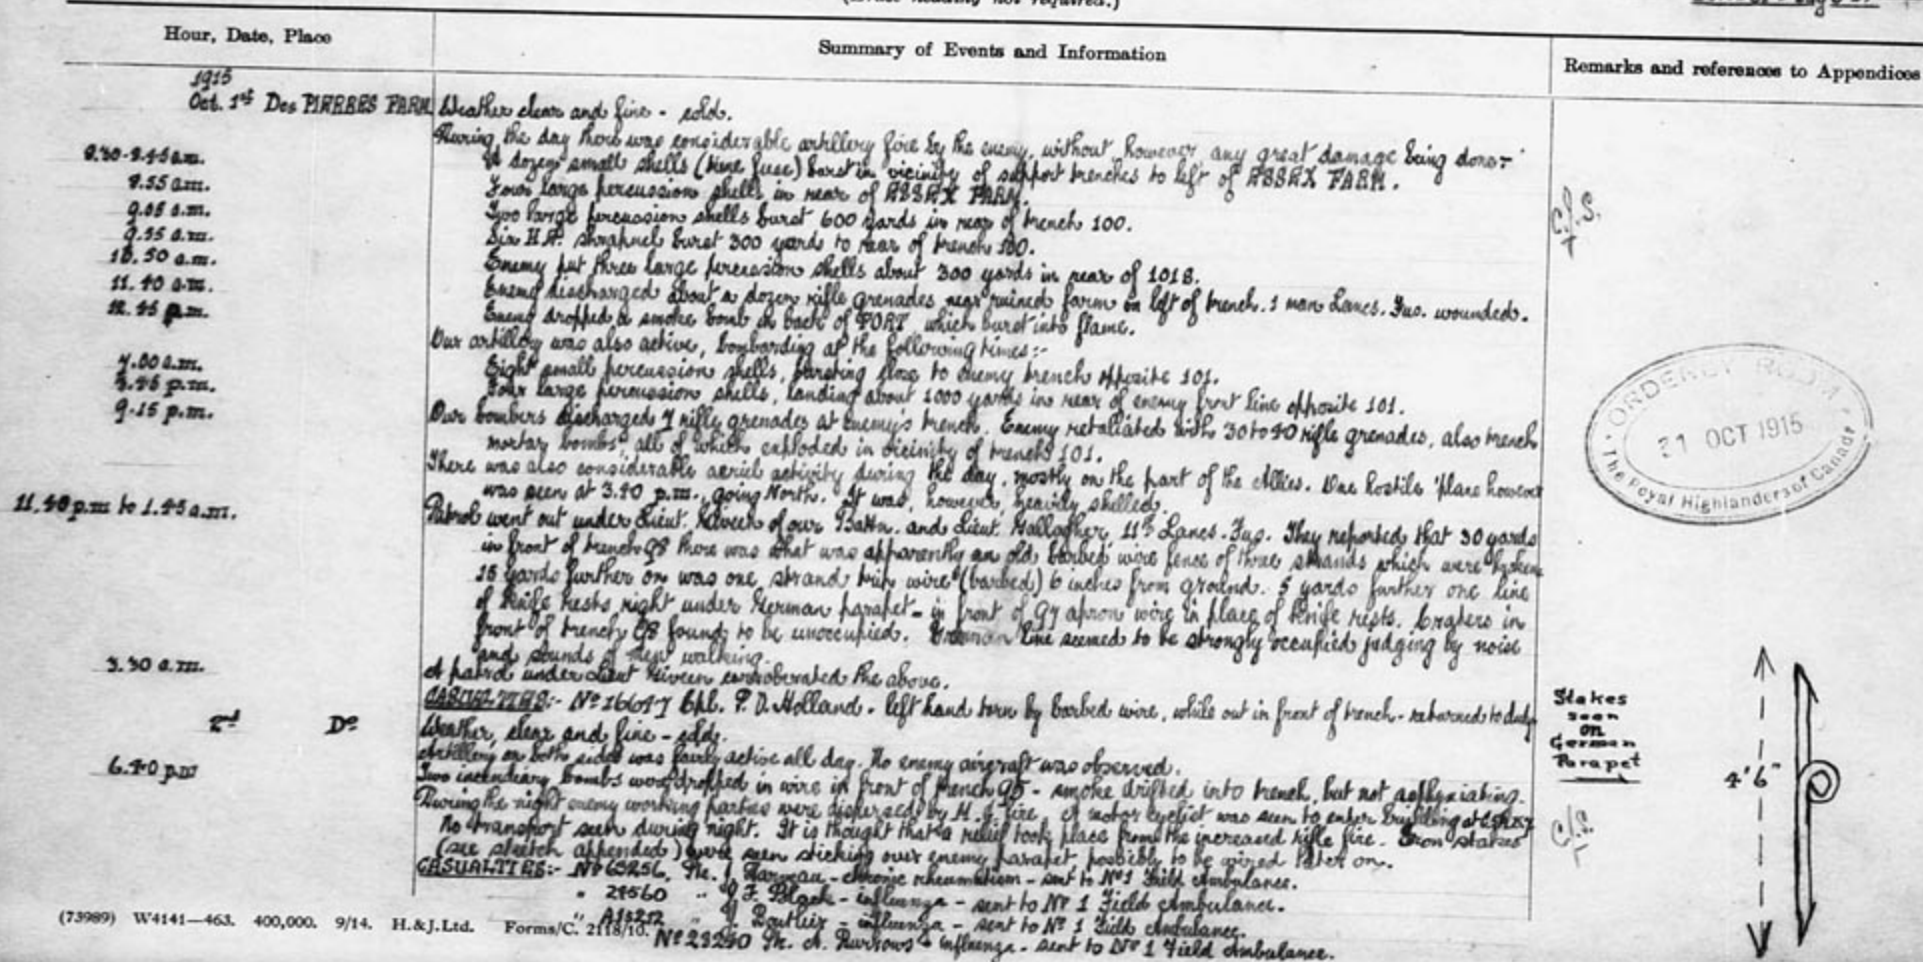 (Erase heading not required.)
Hour, Date, Place
Summary of Events and Information
Remarks and references to Appendices
1915
Oct. 1st Des PIERRES FARM Weather clear and fine - cold.
During the day there was considerable artillery fire by the enemy, without, however, any great damage being done:-
A dozen small shells (time fuse) burst in vicinity of support trenches to left of ESSEX FARM.
8.55 a.m. Four large percussion shells in rear of ESSEX FARM.
9.05 a.m. Two large percussion shells burst 600 yards in rear of trench 100.
9.55 a.m. Six H.E. shrapnel burst 300 yards to rear of trench 100.
10.50 a.m. Enemy put three large percussion shells about 300 yards in rear of 101B.
11.40 a.m. Enemy discharged about a dozen rifle grenades near ruined farm on left of trench. 1 man Lancs. Fus. wounded.
12.45 p.m. Enemy dropped a smoke bomb in back of FORT, which burst into flame.
Our artillery was also active, bombarding at the following times:-
7.00 a.m. Eight small percussion shells, bursting close to enemy trench opposite 101.
3.45 p.m. Four large percussion shells, landing about 1000 yards in rear of enemy front line opposite 101.
9.15 p.m. Our bombers discharged 7 rifle grenades at enemy's trench. Enemy retaliated with 30 to 40 rifle grenades, also trench
mortar bombs, all of which exploded in vicinity of trench 101.
There was also considerable aerial activity during the day, mostly on the part of the Allies. One hostile 'plane however
was seen at 3.40 p.m., going North. It was, however, heavily shelled.
11.40 p.m to 1.45 a.m. Patrol went out under Lieut. of our Battn. and Lieut. Gallagher, 11th Lancs. Fus. They reported that 30 yards
in front of trench 98 there was what was apparently an old barbed wire fence of three strands which were broken
15 yards further on was one strand trip wire (barbed) 6 inches from ground. 5 yards further one line
of knife rests right under German parapet - in front of 97 apron wire in place of knife rests. Craters in
front of trench 98 found to be unoccupied. German line seemed to be strongly occupied judging by noise
and sounds of men walking.
3.30 a.m. A patrol under Lieut corroberated the above.
CASUALTIES:- No 16647 Cpl. P. D. Holland - left hand torn by barbed wire, while out in front of trench - returned to duty
2nd Do Weather, clear and fine - cold.
Artillery on both sides was fairly active all day. No enemy aircraft was observed.
6.40 p.m Two incendiary bombs were dropped in wire in front of trench 95 - smoke drifted into trench, but not asphyxiating.
During the night enemy working parties were dispersed by M.G. fire. A motor cyclist was seen to enter building at
No transport seen during night. It is thought that a relief took place from the increased rifle fire. Iron stakes
(see sketch appended) were seen sticking over enemy parapet possibly to be wired later on.
CASUALTIES:- No 63256, Pte. J. - chronic rheumatism - sent to No 1 Field Ambulance.
" 24560 " F. Black - influenza - sent to No 1 Field Ambulance.
" " Boutlier - influenza - sent to No 1 Field Ambulance.
Pte. A. Burrows - influenza - sent to No 1 Field Ambulance.
C.J.S.
ORDERLY ROOM
31 OCT 1915
The Royal Highlanders of Canada
Stakes
seen
on
German
Parapet
4'6"
C.J.S.
(73989) W4141—463. 400,000. 9/14. H.&J.Ltd. Forms/C. 2118/10.